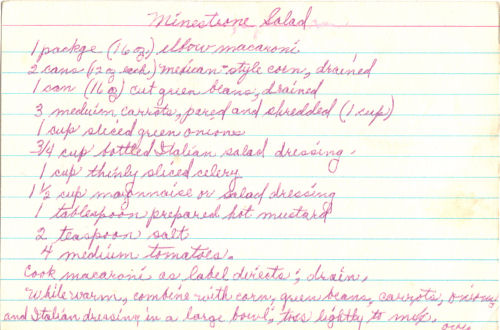 Minestrone Salad
1 packge (16 oz) elbow macaroni
2 cans (12 oz each) mexican-style corn, drained
1 can (16 oz) cut green beans, drained
3 meduim carrots, pared and shredded (1 cup)
1 cup sliced green onions
3/4 cup bottled Italian salad dressing.
1 cup thinly sliced celery
1 1/2 cup mayonnaise or salad dressing
1 tablespoon prepared hot mustard
2 teaspoon salt
4 medium tomatoes.
Cook macaroni as label directs; drain.
While warm, combine with corn, green beans, carrots, onions,
and Italian dressing in a large bowl; toss lightly to mix.
over